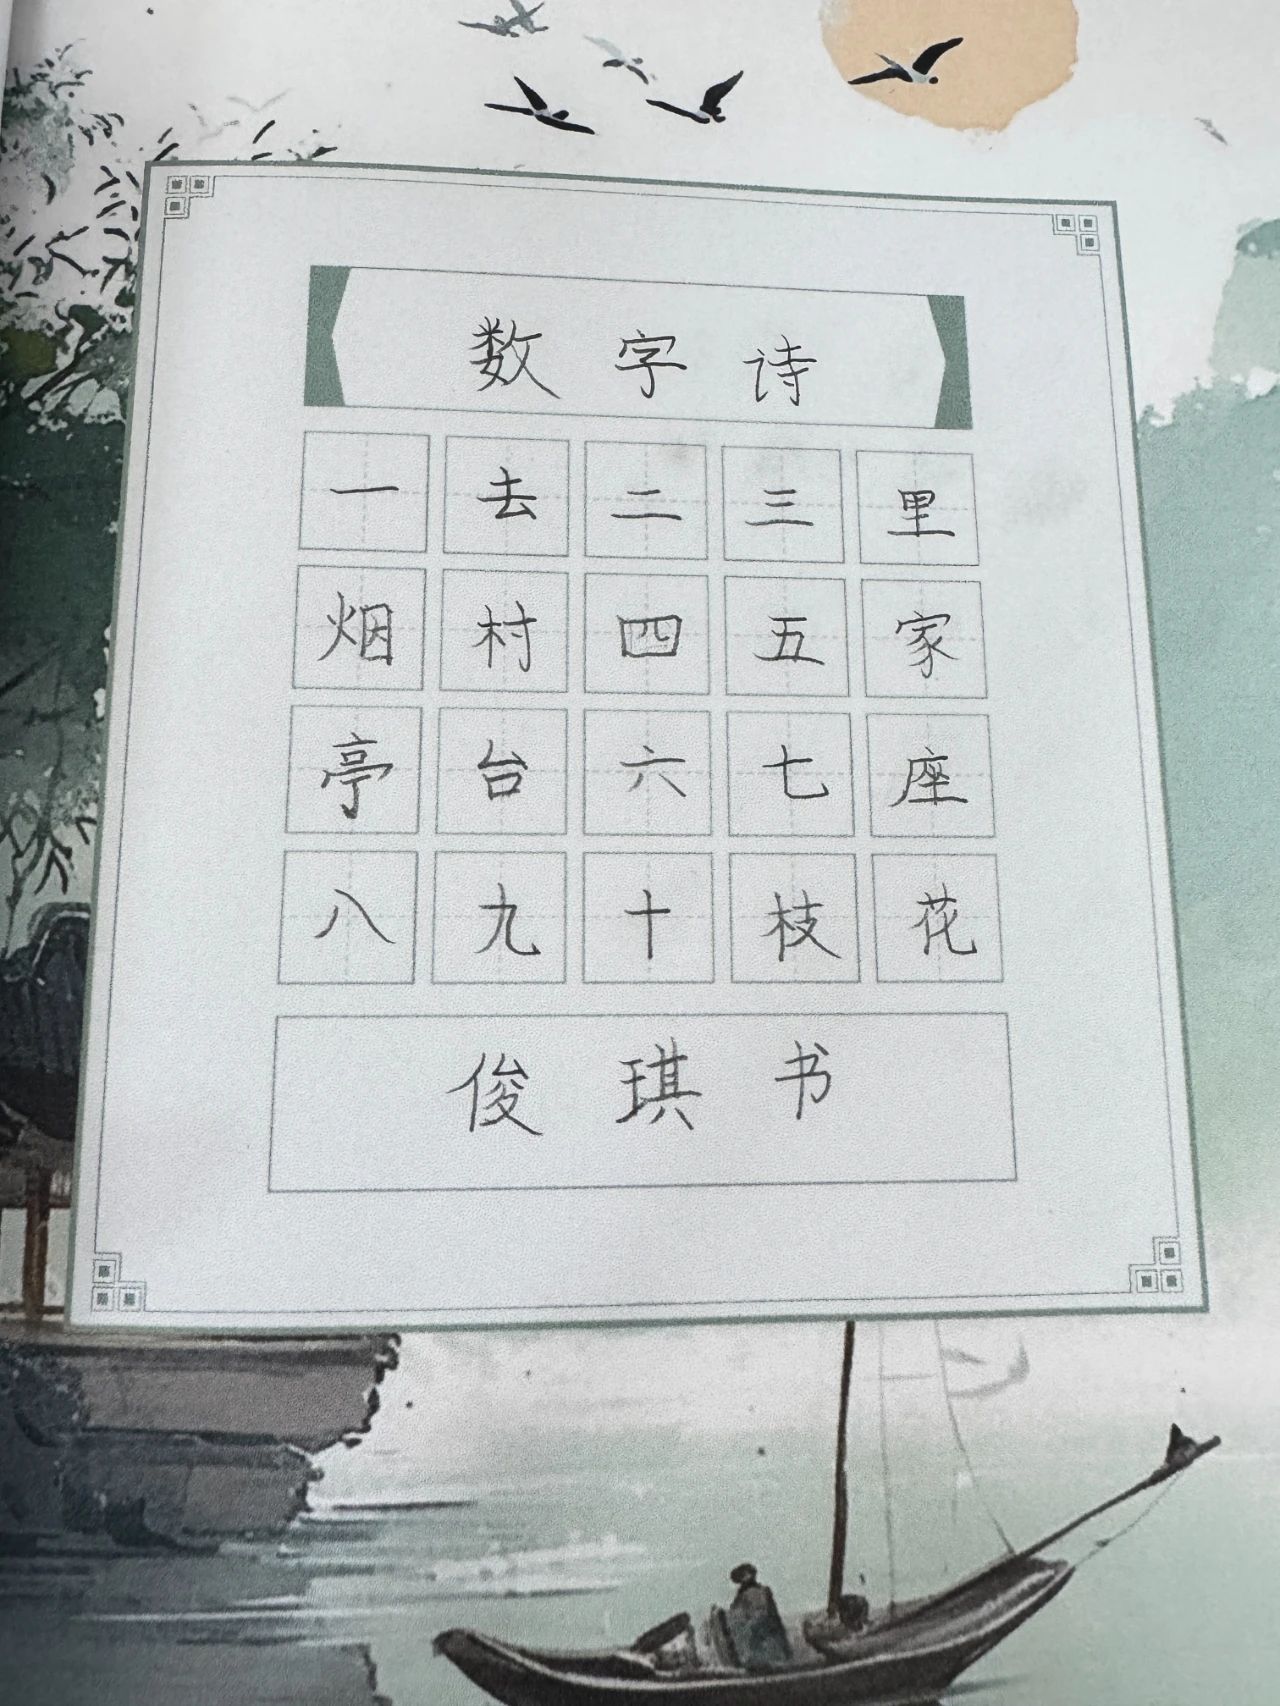 数字诗
一去二三里
烟村四五家
亭台六七座
八九十枝花
俊琪书